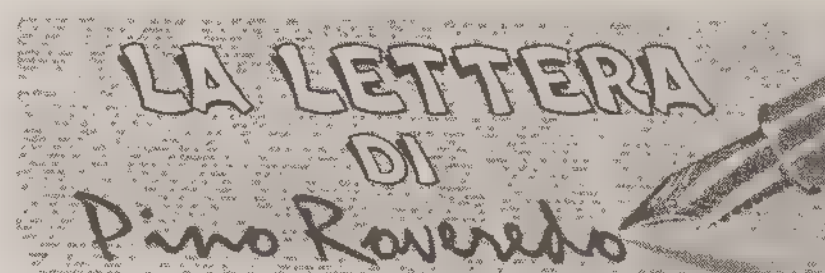 LA LETTERA
DI
Pino Roveredo